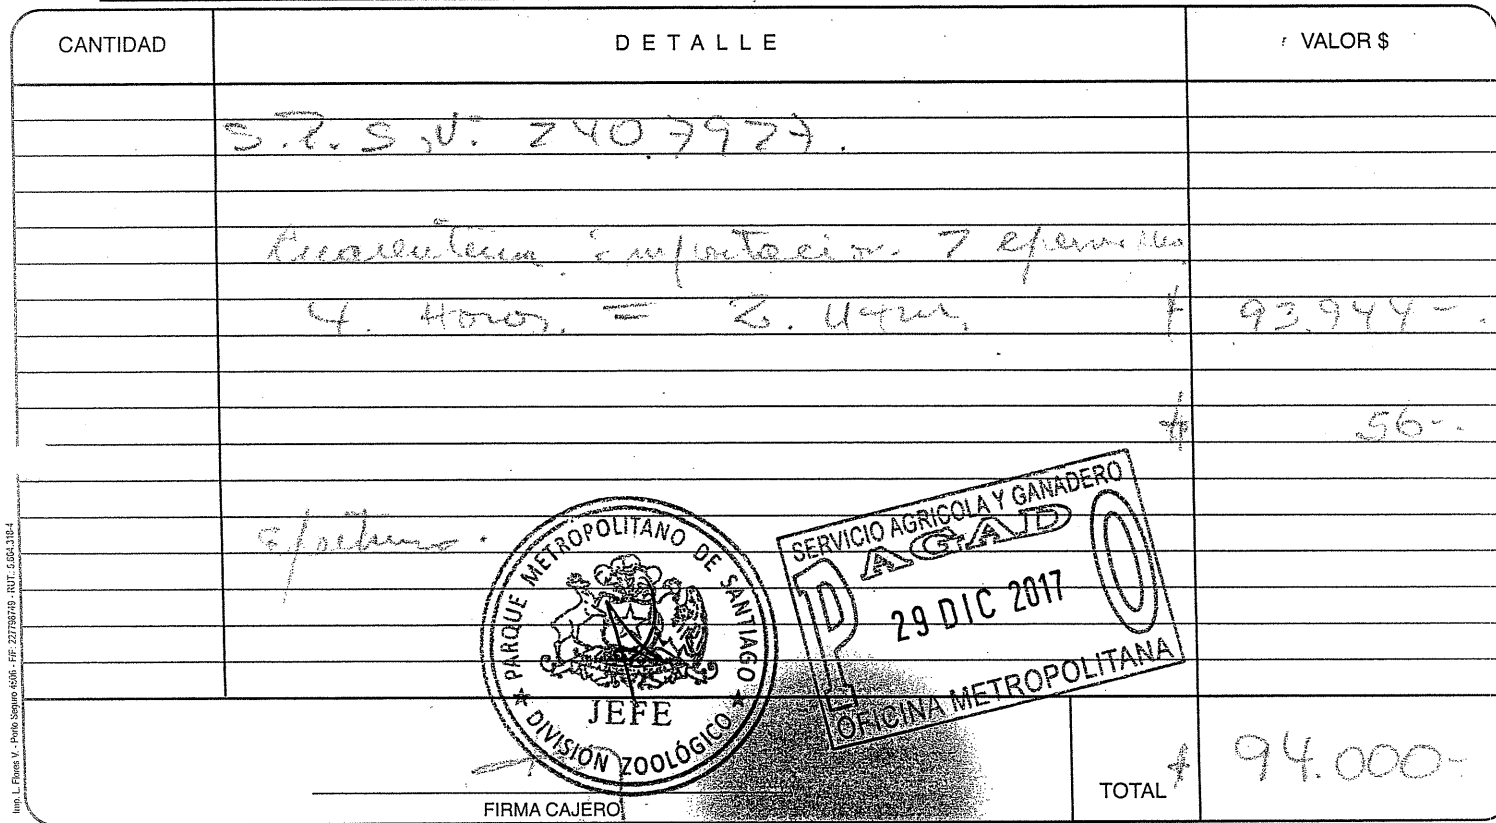 CANTIDAD DETALLE VALOR $
S.R.S.V. 240.7927.
Cuarentena importacion 7
4. Horas. = 2. $ 93.944-.
$ 56-.
PARQUE METROPOLITANO DE SANTIAGO
JEFE
★ DIVISIÓN ZOOLÓGICO ★
SERVICIO AGRICOLA Y GANADERO
PAGADO
29 DIC 2017
OFICINA METROPOLITANA
FIRMA CAJERO
TOTAL $ 94.000-
Imp. L. Flores V. - Porto Seguro 4506 - F/F: 227796749 - RUT.: 5.504.318-4